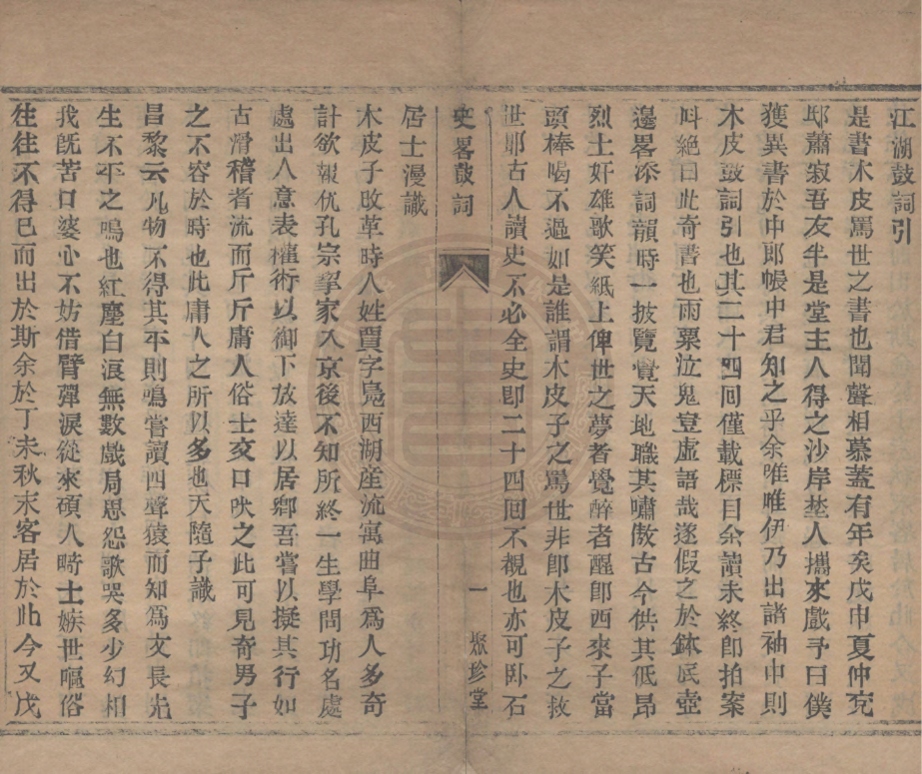 江湖鼓詞引
是書木皮罵世之書也聞聲相慕蓋有年矣戊申夏仲兖
邸蕭寂吾友半是堂主人得之沙岸塾人攜來戲予曰僕
獲異書於中郎帳中君知之乎余唯唯伊乃出諸袖中則
木皮鼓詞引也其二十四回僅載標目余讀未終卽拍案
呌絶曰此奇書也雨粟泣鬼豈虛語哉遂假之於鉢底壺
邊畧添詞韻時一披覽覺天地職其嘯傲古今供其低昻
烈士奸雄歌笑紙上俾世之夢者覺醉者醒卽西來子當
頭棒喝不過如是誰謂木皮子之罵世非卽木皮子之救
世耶古人讀史不必全史卽二十四囘不視也亦可臥石
史畧鼓詞 一 聚珍堂
居士漫識
木皮子敗革時人姓賈字鳧西湖産流寓曲阜爲人多奇
計欲報仇孔宗挈家入京後不知所終一生學問功名處
處出人意表權術以御下放達以居鄕吾嘗以擬其行如
古滑稽者流而斤斤庸人俗士交口吠之此可見奇男子
之不容於時也此庸人之所以多也天隨子識
昌黎云凡物不得其平則鳴嘗讀四聲猿而知爲文長先
生不平之鳴也紅塵白浪無數戲局恩怨歌哭多少幻相
我旣苦口婆心不妨借臂彈淚從來碩人畸士嫉世嘔俗
往往不得已而出於斯余於丁未秋末客居於此今又戊